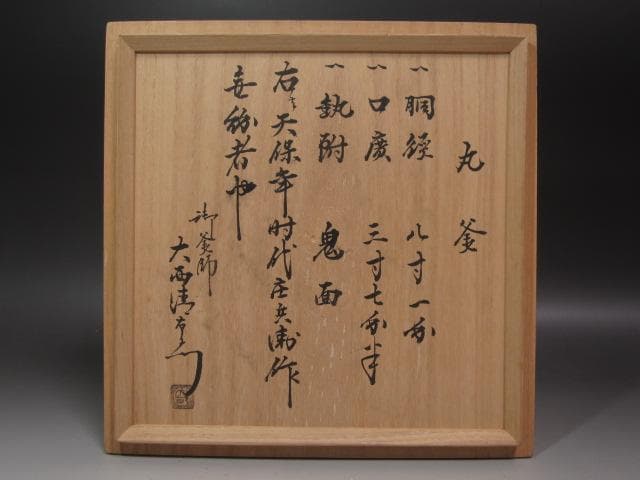 丸釜
一胴径 八寸一分
一口廣 三寸七分半
一執附 鬼面
右之天保年時代庄兵衛作
無紛者也
御釜師
大西清右衛門